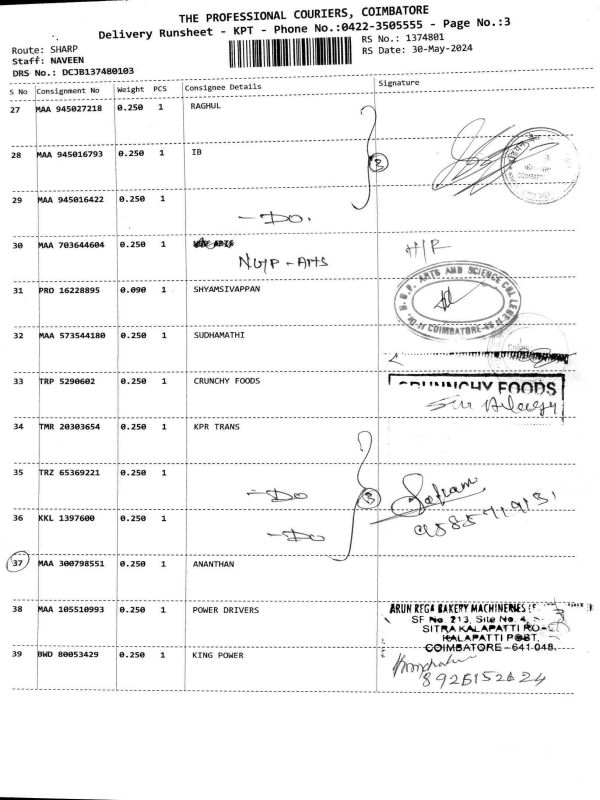 THE PROFESSIONAL COURIERS, COIMBATORE
Delivery Runsheet - KPT - Phone No.:0422-3505555 - Page No.:3
Route: SHARP
RS No.: 1374801
Staff: NAVEEN
RS Date: 30-May-2024
DRS No.: DCJB137480103
S No Consignment No Weight PCS Consignee Details Signature
27 MAA 945027218 0.250 1 RAGHUL
28 MAA 945016793 0.250 1 IB
3
29 MAA 945016422 0.250 1
- DO.
30 MAA 703644604 0.250 1
NGP - Arts
H/R
31 PRO 16228895 0.090 1 SHYAMSIVAPPAN
ARTS AND SCIENCE COLLEGE
COIMBATORE-48
32 MAA 573544180 0.250 1 SUDHAMATHI
33 TRP 5290602 0.250 1 CRUNCHY FOODS
CRUNNCHY FOODS
34 TMR 20303654 0.250 1 KPR TRANS
35 TRZ 65369221 0.250 1
- DO
3
36 KKL 1397600 0.250 1
- DO
37 MAA 300798551 0.250 1 ANANTHAN
38 MAA 105510993 0.250 1 POWER DRIVERS
ARUN REGA BAKERY MACHINERIES
SF No. 213, Site No. 4,
SITRA KALAPATTI ROAD
KALAPATTI POST,
COIMBATORE - 641 048.
39 BWD 80053429 0.250 1 KING POWER
8926152624